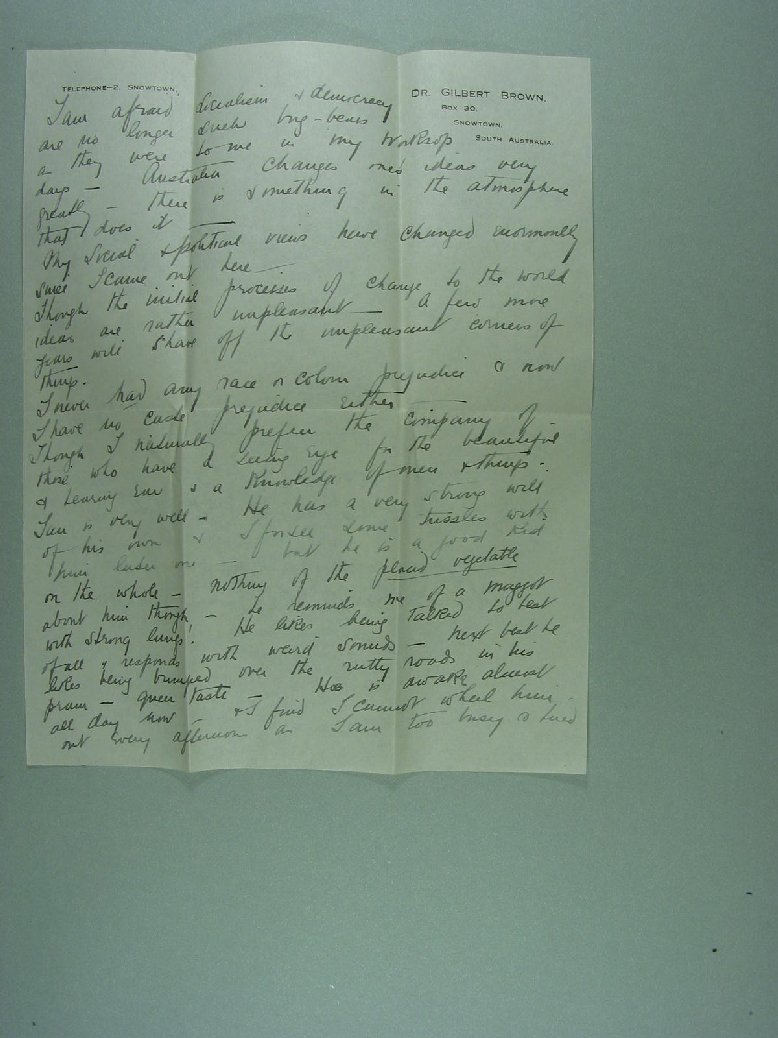 TELEPHONE—2, SNOWTOWN.
DR. GILBERT BROWN,
BOX 30,
SNOWTOWN,
SOUTH AUSTRALIA.
I am afraid Socialism & democracy
are no longer such bug-bears
as they were to me in my Worksop
days — Australia changes one's ideas very
greatly — there is something in the atmosphere
that does it —
My Social & political views have changed enormously
since I came out here —
Though the initial processes of change to the world
ideas are rather unpleasant — a few more
years will shave off the unpleasant corners of
things.
I never had any race or colour prejudice & now
I have no caste prejudice either
Though I naturally prefer the company of
those who have a seeing Eye for the beautiful
& hearing Ear & a Knowledge of men & things.
Ian is very well — He has a very strong will
of his own & I forsee some tussles with
him later on — but he is a good kid
on the whole — nothing of the placid vegetable
about him though — he reminds me of a maggot
with strong lungs! He likes being talked to best
of all & responds with weird sounds — next best he
likes being bumped over the rutty roads in his
pram — queer taste — He is awake almost
all day now — & I find I cannot wheel him
out every afternoon as I am too busy & tired